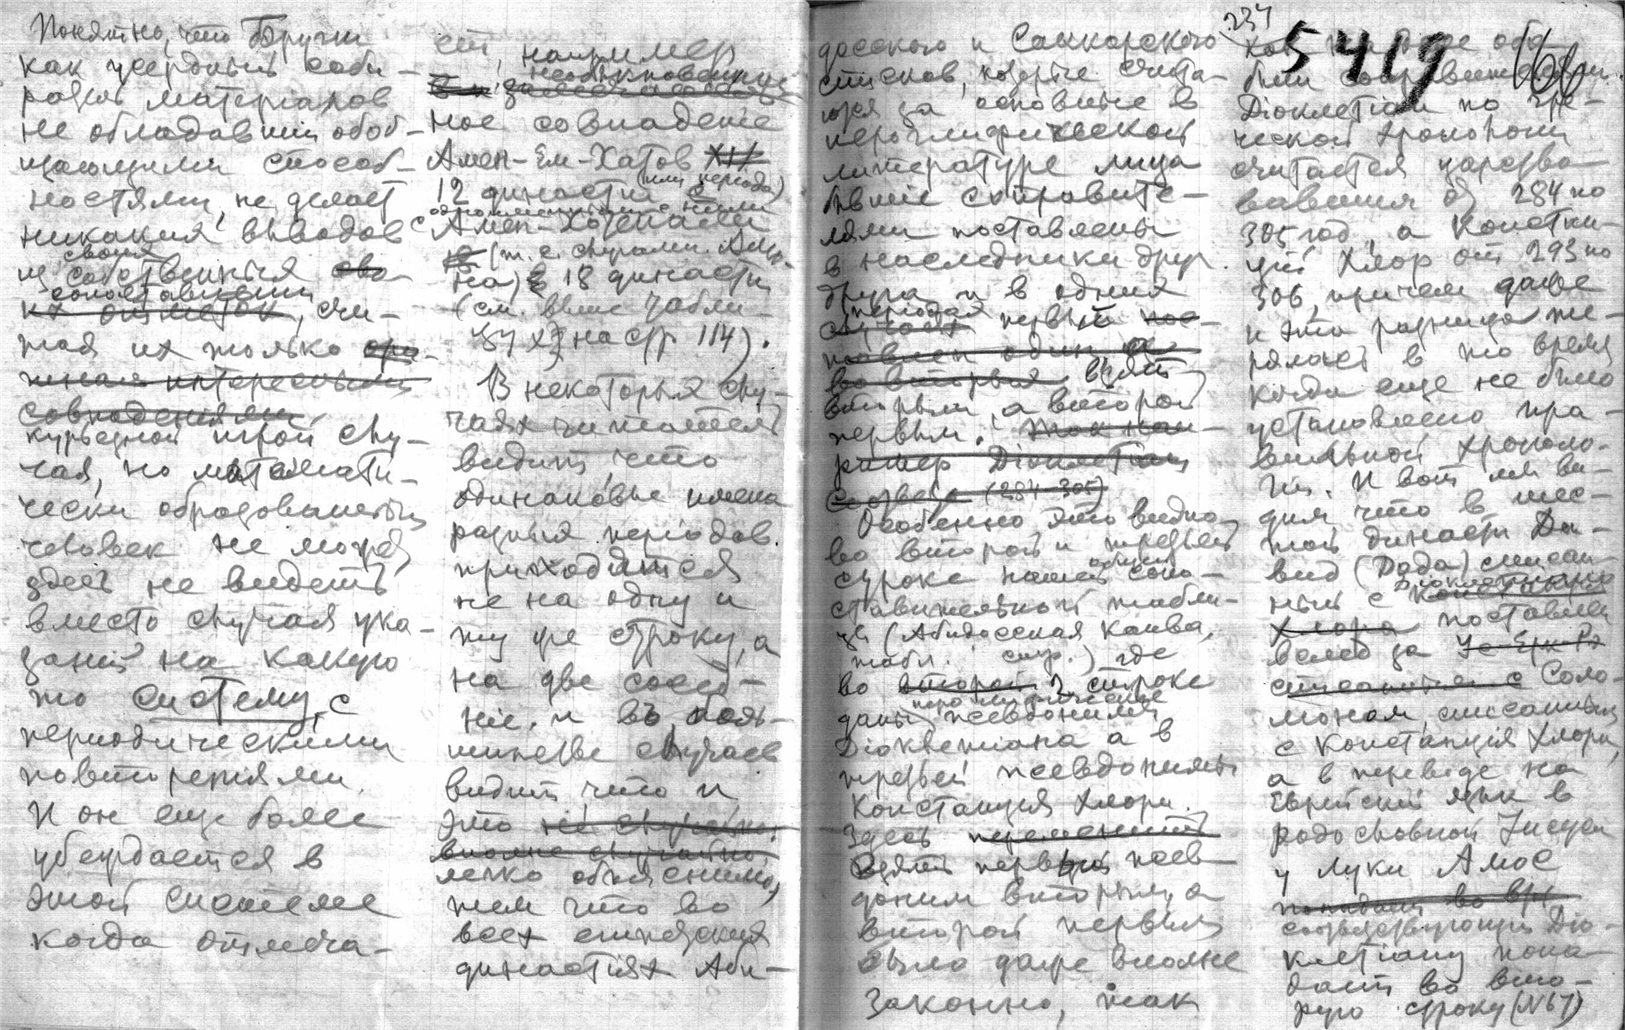 Понятно, что Бругш
как усердный соби-
ратель матерiалов
не обладавший обоб-
щающими способ-
ностями, не делает
никаких выводов
из своих
собственных
сопоставленiй
, счи-
тая их только
курьезной игрой слу-
чая, но математи-
чески образованный
человек не может
здесь не видеть
вместо случая ука-
занiй на какую
то систему, с
перiодическими
повторенiями.
И он еще более
убеждается в
этой системе
когда отмеча-
ет, например
необыкновенную
ное совпаденiе
Амен-Ем-Хатов
12 династiи (или перiода)
с одноименными с ними
Амен-Хотепами
(т. е.
на) 18 династiи
(см. выше табли-
цу на стр 114).
В некоторых слу-
чаях читатель
видит, что
одинаковые имена
разных перiодов
приходятся
не на одну и
ту же строку, а
на две сосед-
нiе, и въ боль-
шинстве случаев
видит, что и
это не случайно,
вполне случайно,
легко объяснимо,
тем что во
всех египетских
династiях Аби-
234
5419
160
досского и Саккарского
списков, которые счита-
ются за основные в
иероглифической
литературе лица
бывшiе соправите-
лями поставлены
в наследники друг
друга и в одних
перiодах
случаях первый
взят
вторым, а второй
первым.
Дiоклетiан
(284-305)
Особенно это видно
во второй и третьей
строке нашей общей сопо-
ставительной табли-
цы (Абидосская Канва,
табл. стр. ) где
во второй 2 строке
даны
псевдонимы
Дiоклетiана а в
третьей псевдонимы
Констанцiя Хлора.
Здесь
взять первый псев-
доним вторым, а
второй первым
было даже вполне
законно, так
как
были соправителями.
Дiоклетiан по гре-
ческой хронологiи
считается царство-
вавшим от 284 по
305 год, а Констан-
цiй Хлор от 293 по
306, причем даже
и эта разница те-
рялась в то время
когда еще не было
установлено пра-
вильной хроноло-
гiи. И вот мы ви-
дим, что в шес-
той династiи Да-
вид (Дода) списан-
ный с Дiоклетiана
Хлора поставлен
вслед за
списанным с Соло-
моном, списанным
с Констанцiя Хлора,
а в переводе на
Еврейский язык в
родословной Iисуса
у Луки Амос
соответствующiй Дiо-
клетiану попа-
дает во вто-
рую строку (№ 67)